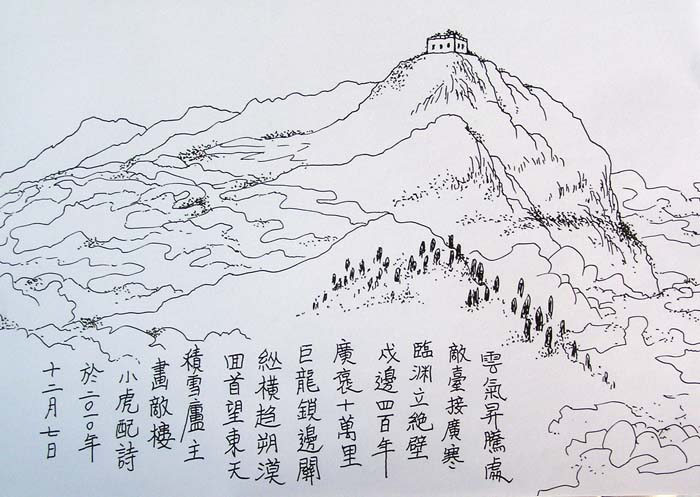 雲氣昇騰處
敵臺接廣寒
臨渊立絶壁
戍邊四百年
廣袤十萬里
巨龍鎖邊關
縱橫趋朔漠
回首望東天
積雪廬主
畫敵樓
小虎配詩
於二〇一〇年
十二月七日